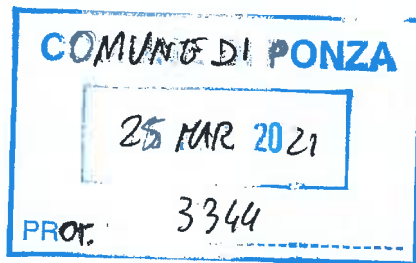 COMUNE DI PONZA
25 MAR 2021
PROT. 3344